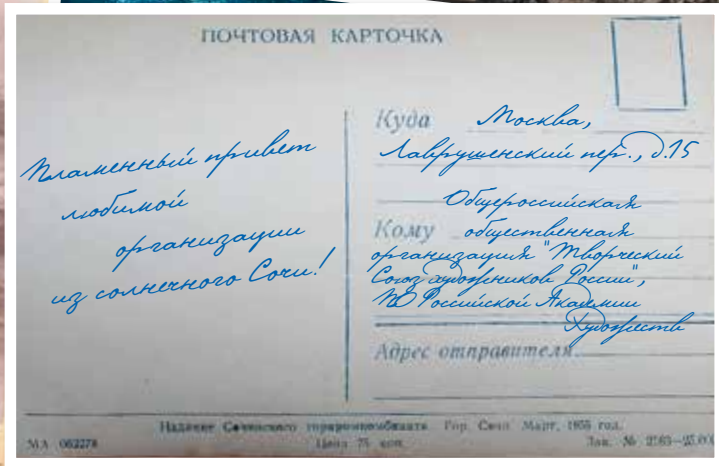 ПОЧТОВАЯ КАРТОЧКА
Пламенный привет
любимой
организации
из солнечного Сочи!
Куда Москва,
Лаврушенский пер., д.15
Общероссийская
Кому общественная
организация "Творческий
Союз художников России",
ПО Российской Академии
Художеств
Адрес отправителя
Издание Сочинского горпромкомбината. Гор. Сочи. Март, 1955 год.
МА 062278 Цена 75 коп. Зак. № 2163—25.000